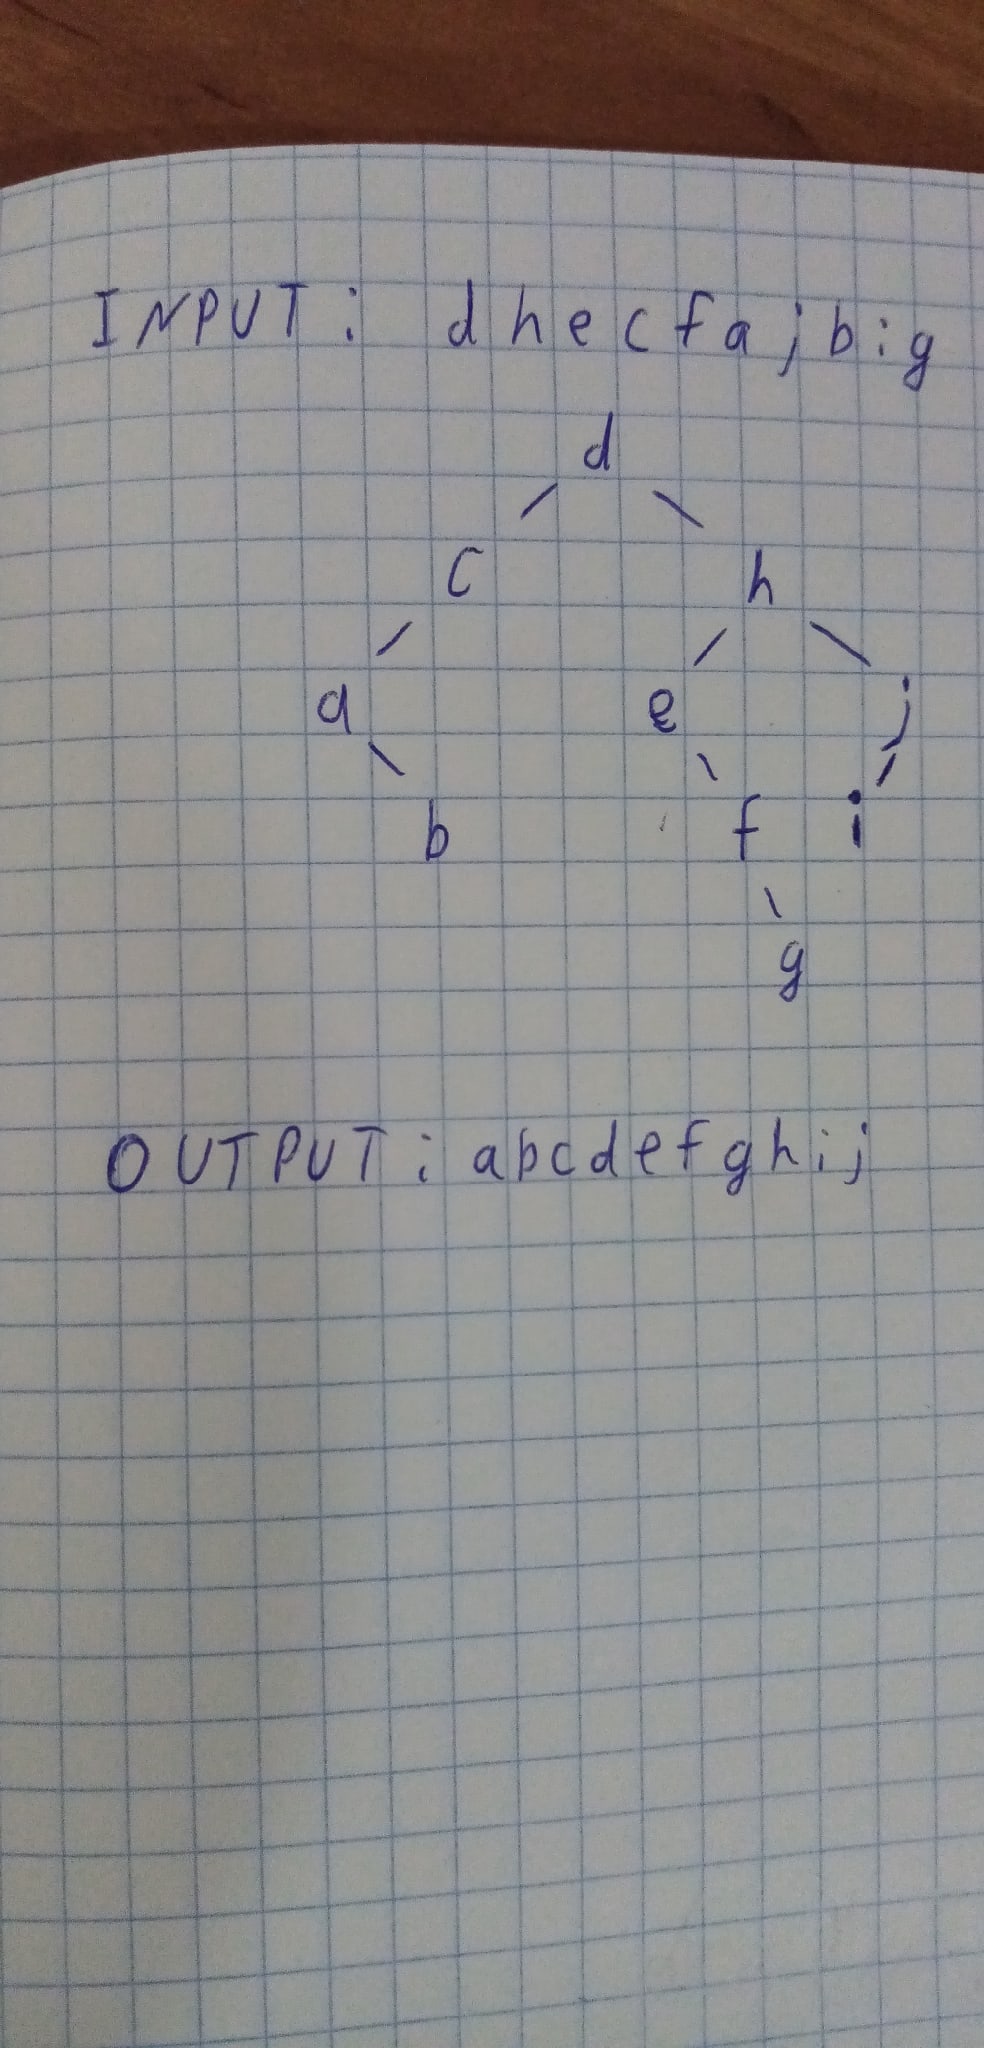 INPUT: d h e c f a j b i g
d
c h
a e j
b f i
g
OUTPUT: a b c d e f g h i j